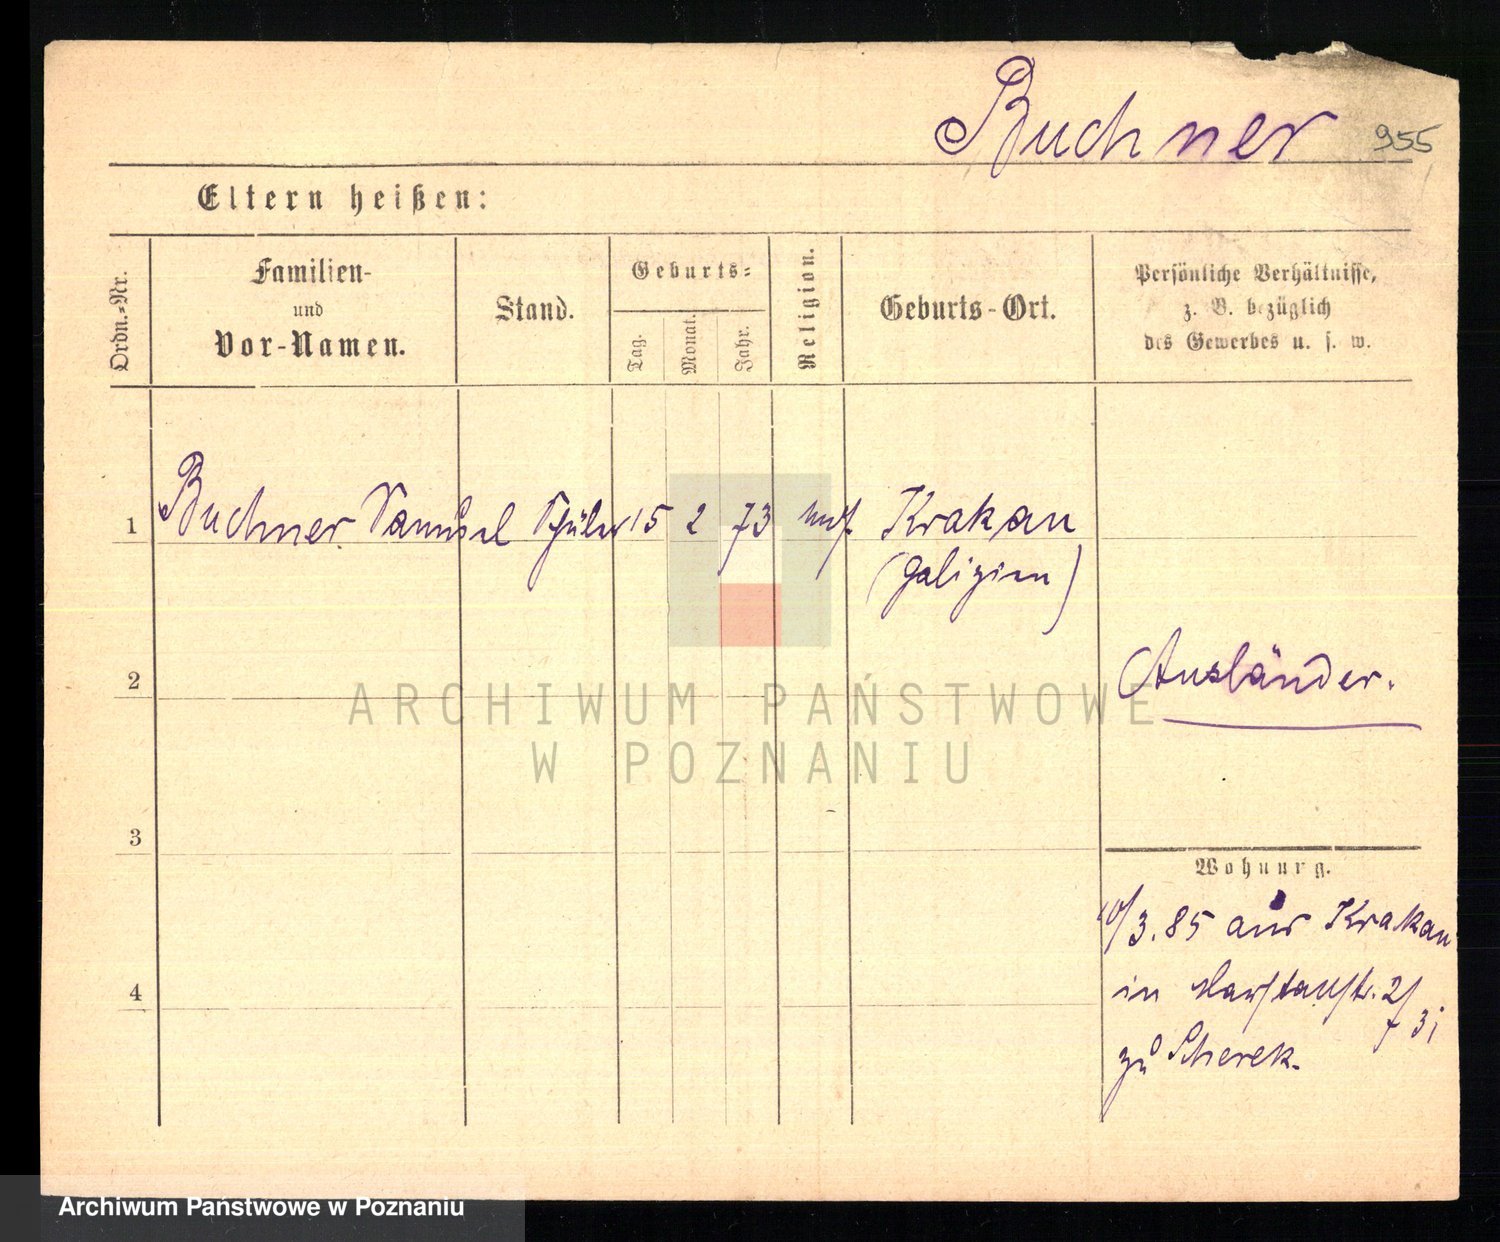 Buchner 955
Eltern heißen:
Ordn.-Nr.
Familien-
und
Vor-Namen.
Stand.
Geburts-
Tag.
Monat.
Jahr.
Religion.
Geburts-Ort.
Persönliche Verhältnisse,
z. B. bezüglich
des Gewerbes u. s. w.
1 Buchner Samuel Schüler 15 2 73 mos. Krakau
(Galizien)
2
Ausländer.
ARCHIWUM PAŃSTWOWE
W POZNANIU
3
Wohnung.
10/3.85 aus Krakau
4
in 2/
zu Scherek.
Archiwum Państwowe w Poznaniu